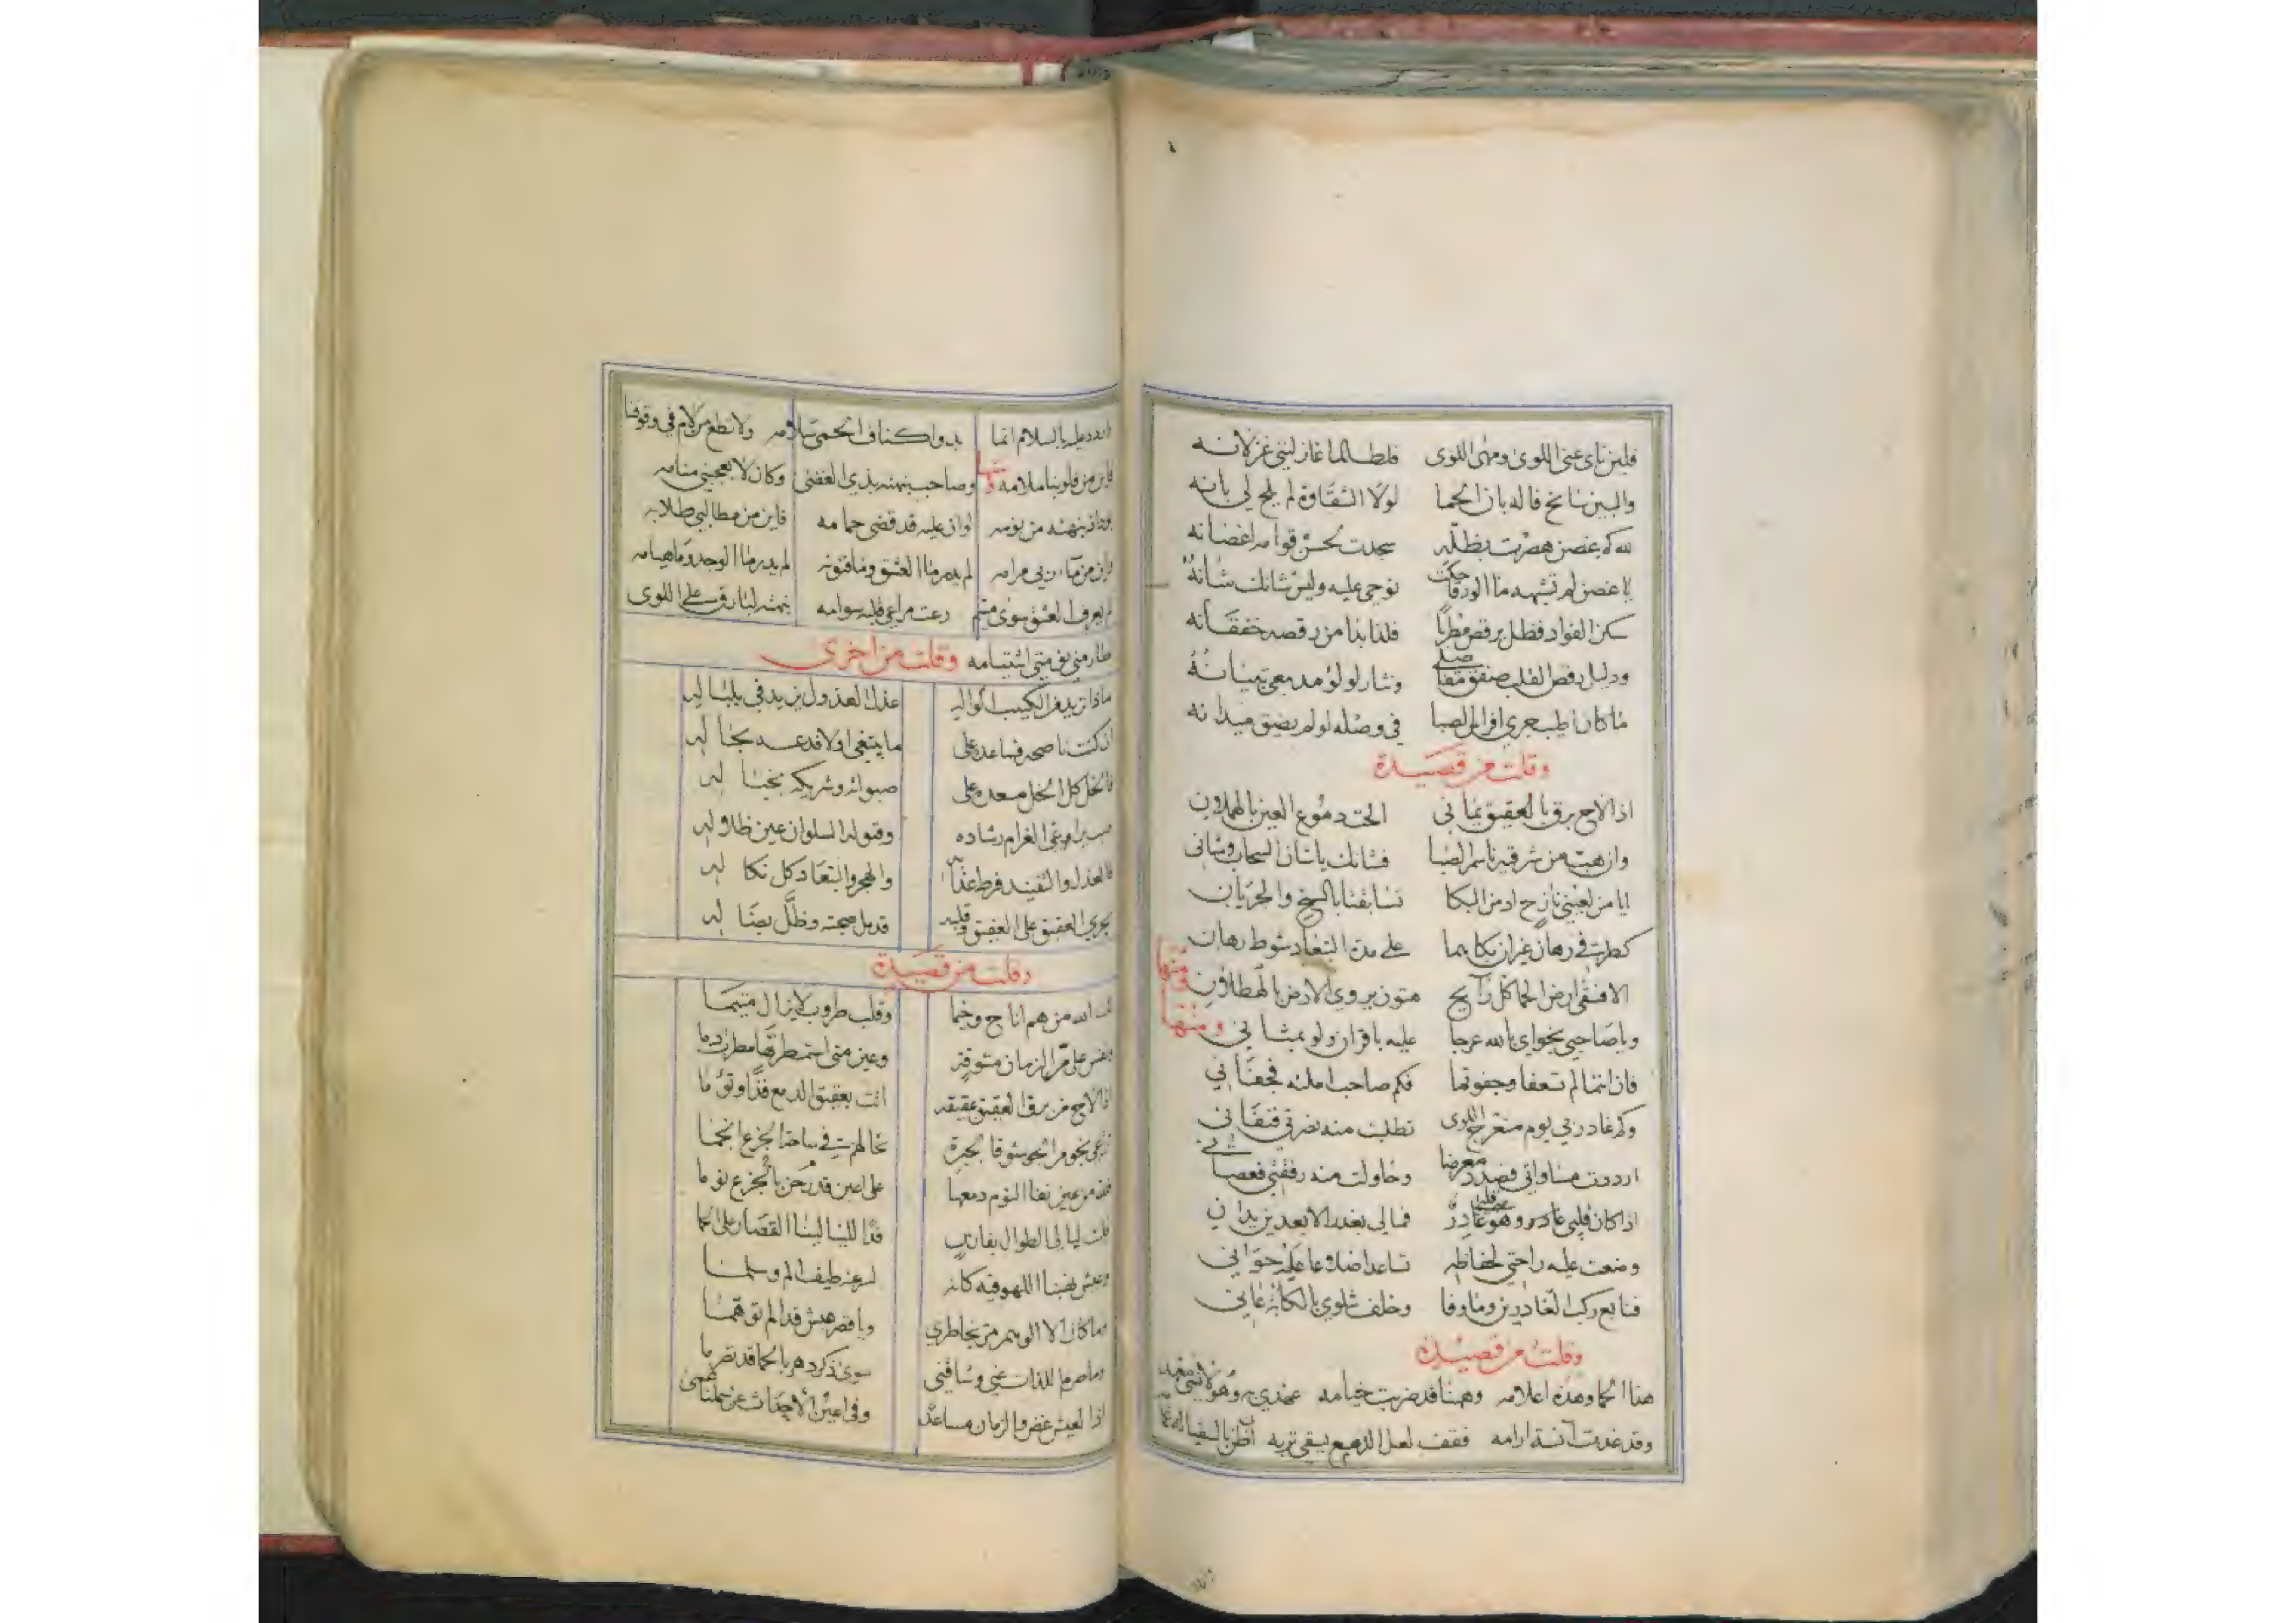 فلين ناى عنى اللوى ومهى اللوى فلطالما غازلتنى غزلانه
والبين سانح فاله بان الحما لولا الشقاوة لم يلح لى بانه
لله كم غصن هصرت بظله سجدت لحسن قوامه اغصانه
يا غصن لم تشهد ما الورقا حكت نوحى عليه وليس شانك شانه
سكن الفواد فظل يرقص مطربا فلذا بدا من رقصه خفقانه
ودليل رقص القلب صفق ونثار لولو مدمعى تهتانه
ما كان اطيب جرى افراس الصبا فى وصله لو لم يضق ميدانه
وقلت من قصيدة
اذا لاح برق بالعقيق يمانى الحت دموع العين بالهملان
وان هبت من شرقيه ناسم الصبا فشانك يا شان السحاب وشانى
ايا من لعينى نازح ادمن البكا تسابقتا بالسح والجريان
كطرفى رهان غير ان بكاهما على مدة التبعاد شوط رهان
الا فسقى ارض الحما كل رايح هتون يروى الارض بالهطلان ومنها
ويا صاحبى نجواى بالله عرجا عليه باقران ولو بمثانى ومنها
فان انتما لم تسعفا وجفوتما فكم صاحب املته فجفانى
وكم غادر بى يوم منعرج اللوى تطلبت منه نصرتى فتفانى
اردت مساواتى فصد معرضا وحاولت منه رفقتى فعصانى
اذا كان قلبى غادر وهو غادر فمالى بعد الابعدين يدان
وضعت عليه راحتى لحفاظه تساعد اضلاعا عليه حوانى
فتابع ركب الغادرين وما وفا وخلف شلوى بالكابة عانى
وقلت من قصيدة
هذا الحما وهذه اعلامه وههنا قد ضربت خيامه عهدى به وهو
وقد غدت انسة ارامه فقف لعل الدمع يسقى تربه
عليه بالسلام انما بدو اكناف الحمى سلامه ولا تطع من لام فى وقوفنا
فاين من قلوبنا ملامه ومنها وصاحب نبهته بذى الغضى وكان لا يعجبنى منامه
نبهته من نومه لو ان عليه قد قضى حمامه فاين من مطالبى طلابه
واين من مرامه لم يدر ما العشق وما فنونه لم يدر ما الوجد وما هيامه
لم يعرف العشق سوى متيم رعت مراعى قلبه سوامه نبهته لبارق على اللوى
طار منى يقظتى ابتسامه وقلت من اخرى
ماذا تريد من الكئيب الواله عذل العذول يزيد فى بلباله
ان كنت ناصحه فساعده على ما يبتغى او لا فدعه بحاله
فالخل كل الخل مسعده على صبواته وشريكه بخباله
الغرام رشاده وقبوله السلوان عين ظلاله
فالعذل والتفنيد فرط عذابه والهجر والتبعاد كل نكاله
يجرى العقيق على العقيق قد بل مهجته وظل بضاله
وقلت من قصيدة
الله من هم اناخ وخيما وقلب طروب لا يزال متيما
ونفس على مر الزمان مشوقة وعين متى استمطرتها مطرت دما
اذا لاح من برق العقيق عقيقه اتت بعقيق الدمع فذا وتوءما
ترعى نجوم الجو شوقا لجيرة تخالهم فى ساحة الجزع انجما
من عين نفا النوم دمعها على اعين قد رحن بالجزع نوما
ليالى الطوال بقارب فدا لليالينا القصار على الحما
وعيش نهبنا اللهو فيه كانه لسرعته طيف الم وسلما
وما كان الا الوهم مر بخاطرى ويا قصر عيش فدا لم توهما
وما صرم اللذات عنى وساقنى سوى ذكر دهر بالحما قد تصرما
اذا العيش غض والزمان مساعد وفى اعين الاحداث عن جهلنا عمى